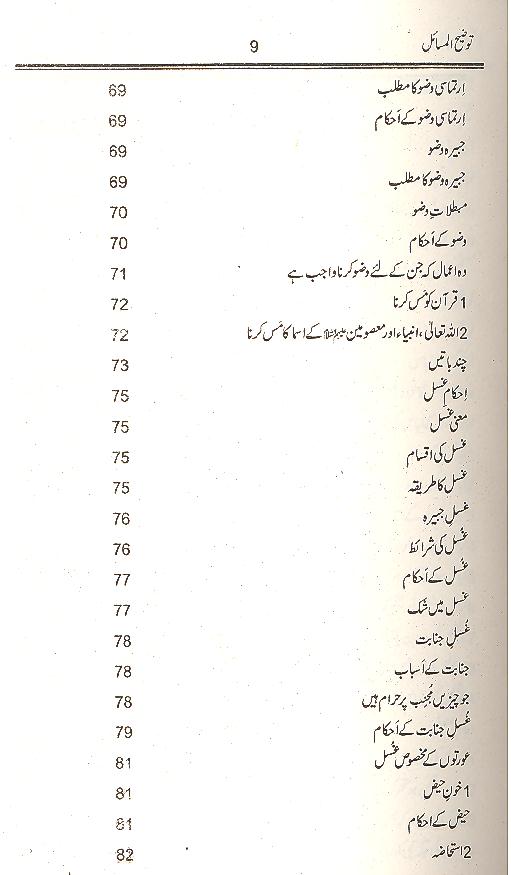 توضیح المسائل 9
اِرتماسی وضو کا مطلب 69
اِرتماسی وضو کے اَحکام 69
جبیرہ وضو 69
جبیرہ وضو کا مطلب 69
مبطلاتِ وضو 70
وضو کے اَحکام 70
وہ اعمال کہ جن کے لئے وضو کرنا واجب ہے 71
1 قرآن کو مَس کرنا 72
2 اللہ تعالٰی، انبیاء اور معصومین علیہم السلام کے اسما کا مَس کرنا 72
چند باتیں 73
اِحکامِ غسل 75
معنی غسل 75
غسل کی اقسام 75
غسل کا طریقہ 75
غسلِ جبیرہ 76
غُسل کی شرائط 76
غُسل کے اَحکام 77
غسل میں شَک 77
غُسلِ جنابت 78
جنابت کے اَسباب 78
جو چیزیں مُجنِب پر حرام ہیں 78
غُسلِ جنابت کے اَحکام 79
عورتوں کے مخصوص غُسل 81
1 خونِ حیض 81
حیض کے احکام 81
2 استحاضہ 82